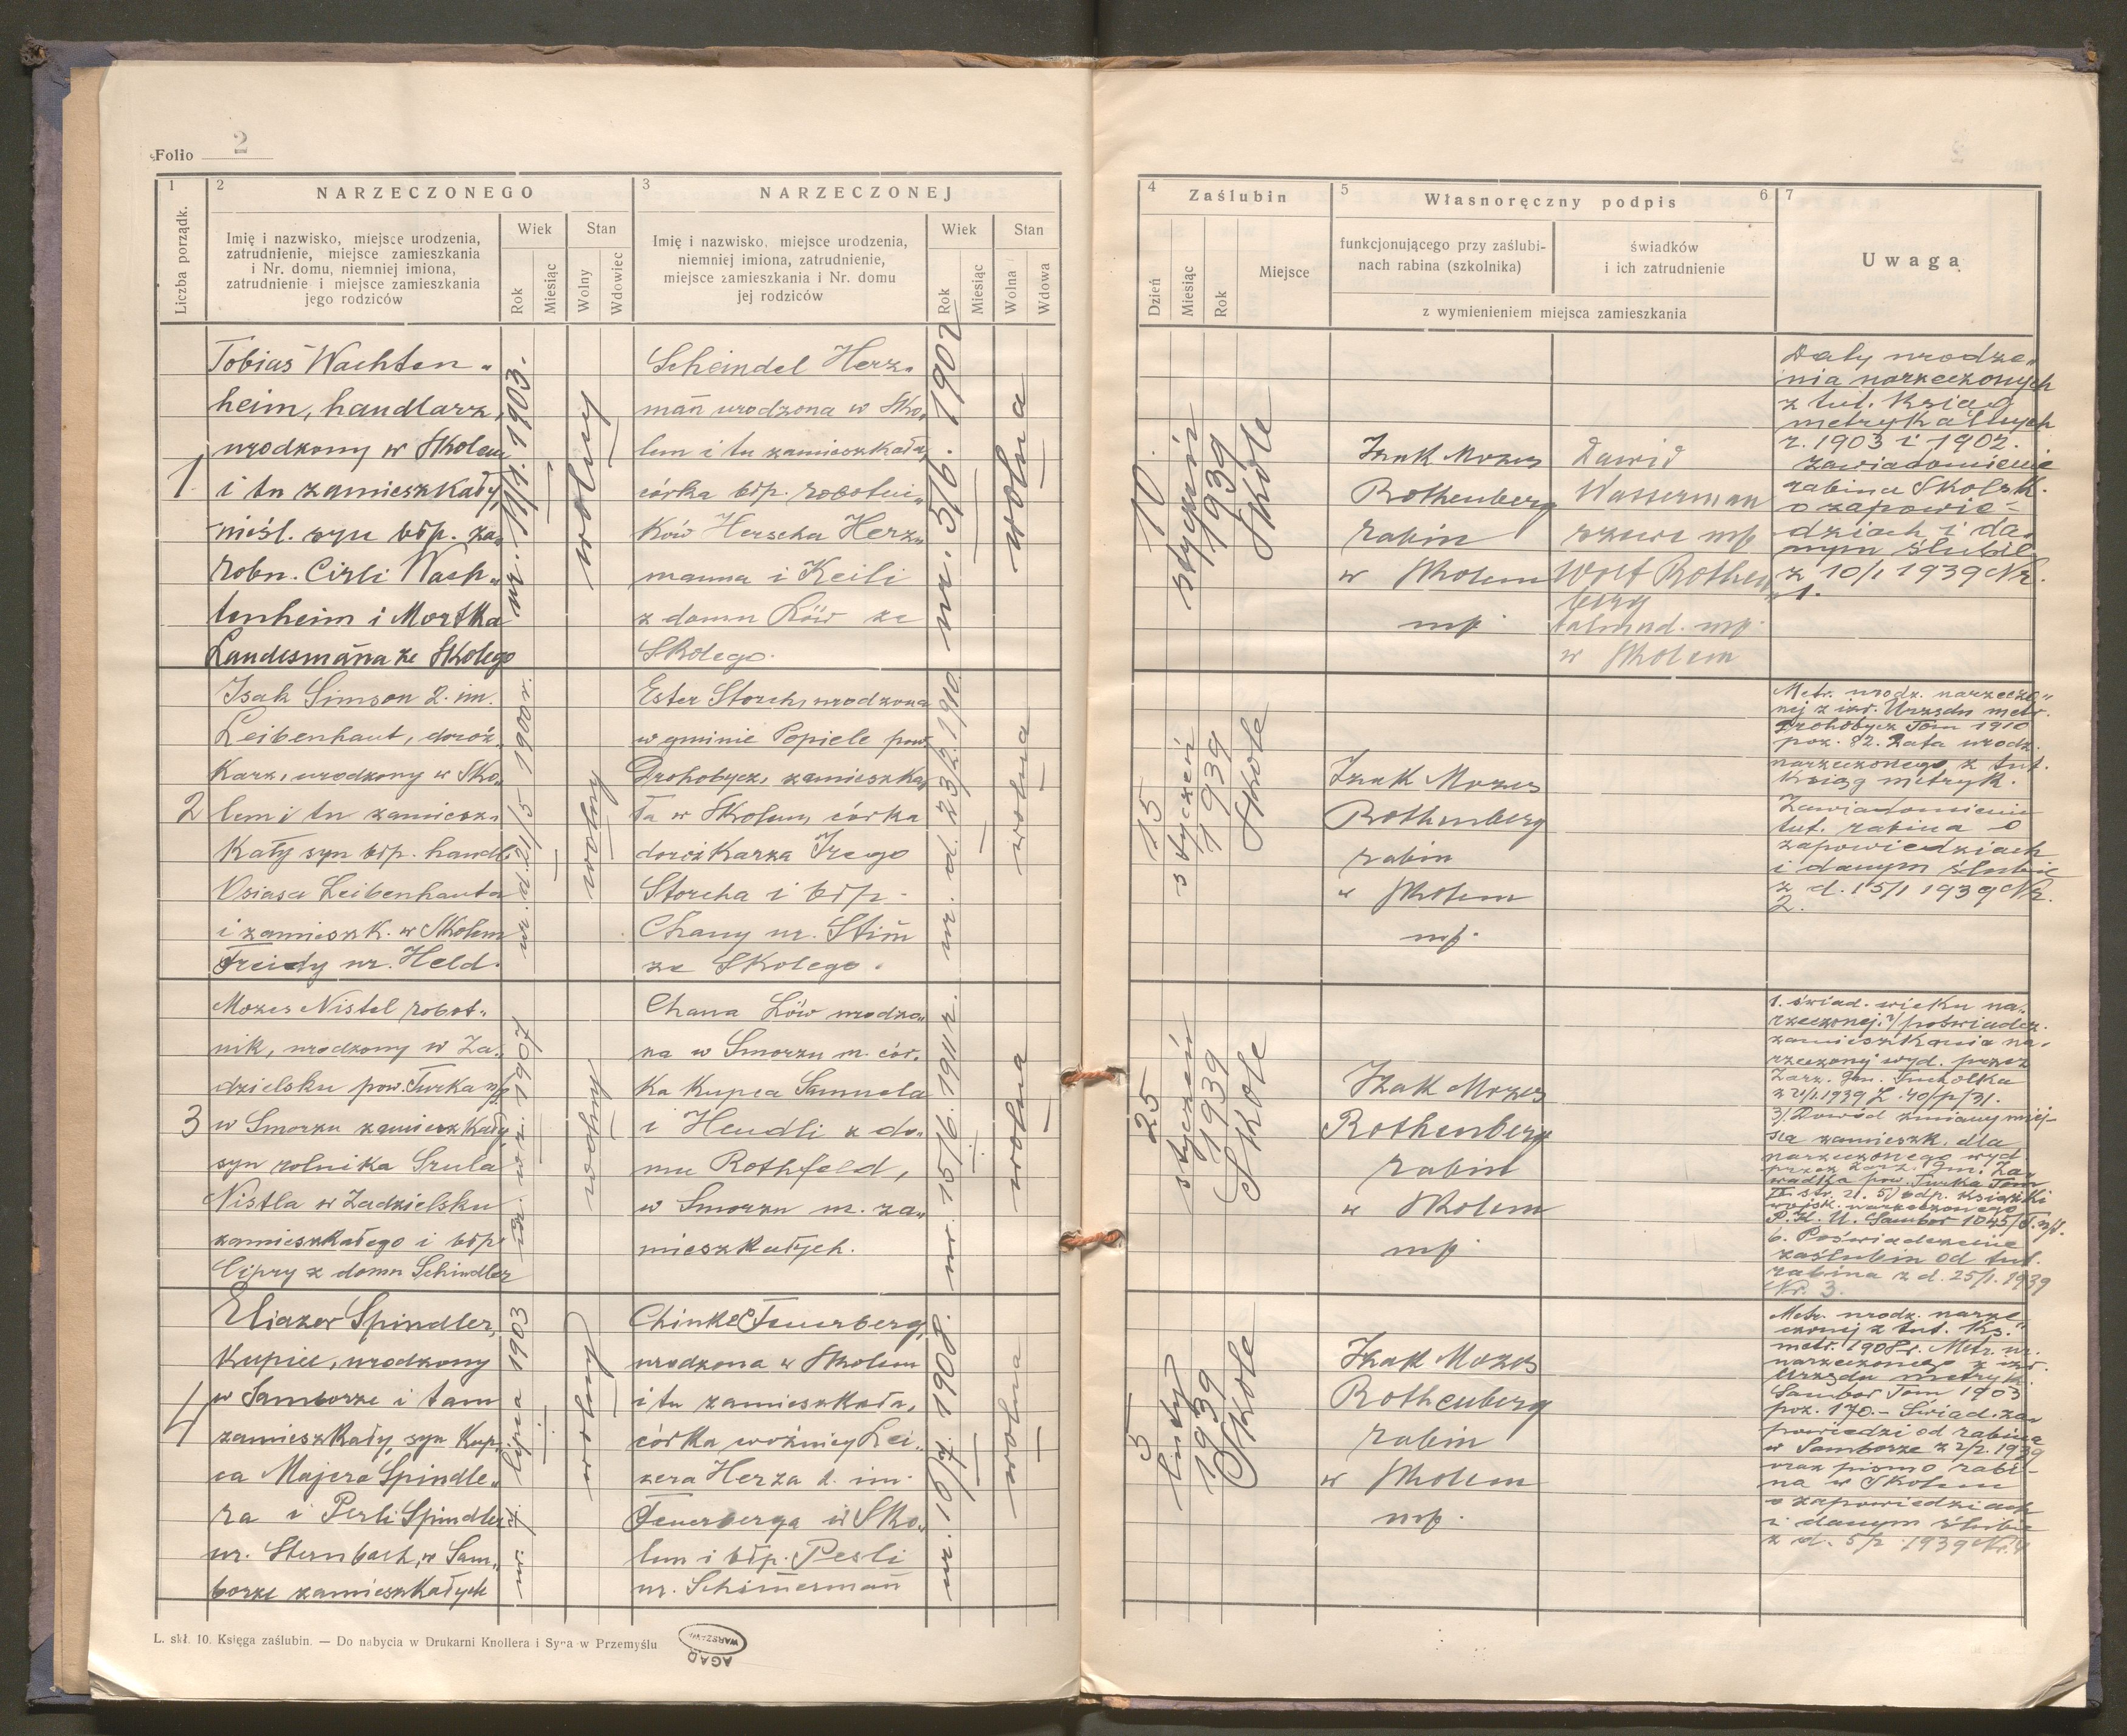 Folio 2
1
2
NARZECZONEGO
3
NARZECZONEJ
Liczba porządk.
Imię i nazwisko, miejsce urodzenia,
zatrudnienie, miejsce zamieszkania
i Nr. domu, niemniej imiona,
zatrudnienie i miejsce zamieszkania
jego rodziców
Wiek
Rok
Miesiąc
Stan
Wolny
Wdowiec
Imię i nazwisko, miejsce urodzenia,
niemniej imiona, zatrudnienie,
miejsce zamieszkania i Nr. domu
jej rodziców
Wiek
Rok
Miesiąc
Stan
Wolna
Wdowa
4
Zaślubin
Dzień
Miesiąc
Rok
Miejsce
5
Własnoręczny podpis
6
funkcjonującego przy zaślubi-
nach rabina (szkolnika)
świadków
i ich zatrudnienie
z wymienieniem miejsca zamieszkania
7
Uwaga
1
Tobias Wachten„
heim, handlarz,
urodzony w Skolem
i tu zamieszkały,
nieśl. syn błp. za„
robn. Cirli Wach„
tenheim i Mortka
Landesmana ze Skolego
ur. 11/1. 1903.
wolny
Scheindel Herz„
man urodzona w Sko„
lem i tu zamieszkała,
córka błp. robotni„
ków Herscha Herz„
manna i Keili
z domu Löw ze
Skolego.
ur. 5/6. 1902
wolna
10.
styczeń
1939
Skole
Izak Mozes
Rothenberg
rabin
w Skolem
mp.
Dawid
Wasserman
rzewc mp
Wolf Rothen
berg
talmud. mp.
w Skolem
Daty urodze„
nia narzeczonych
z tut. Ksiąg
metrykalnych
r. 1903 i 1902.
zawiadomienie
rabina Skolsk.
o zapowie-
dziach i da„
nym ślubie
z 10/1 1939 Nr.
1.
2
Isak Simson 2. im.
Leibenhaut, doroż„
karz, urodzony w Sko„
lem i tu zamiesz„
kały syn błp. handl.
Osiasa Leibenhauta
i zamieszk. w Skolem
Freidy ur. Held.
ur. d. 21/5 1900 r.
wolny
Ester Storch, urodzona
w gminie Popiele pow.
Drohobycz, zamieszka„
ła w Skolem, córka
dorożkarza
Storcha i błp.
Chany ur.
ze Skolego.
ur. d. 23/2. 1910
wolna
15
styczeń
1939
Skole
Izak Mozes
Rothenberg
rabin
w Skolem
mp.
Metr. urodz. narzeczo„
nej z izr. Urzędu metr.
Drohobycz Tom 1910
poz. 82. Data urodz.
narzeczonego z tut.
Ksiąg metryk.
Zawiadomienie
tut. rabina o
zapowiedziach
i danym ślubie
z d. 15/1 1939 Nr.
2.
3
Mozes Nistel robot„
nik, urodzony w Za„
dzielsku pow. Turka n/S.
w Smorzu zamieszkały,
syn rolnika Srula
Nistla w Zadzielsku
zamieszkałego i błp.
Cipry z domu Schindler
1907
wolny
Chana Löw urodzo„
na w Smorzu m. cór„
ka kupca Samuela
i Hendli z do„
mu Rothfeld,
w Smorzu m. za„
mieszkałych.
ur. 15/6. 1911 r.
wolna
25
styczeń
1939
Skole
Izak Mozes
Rothenberg
rabin
w Skolem
mp.
1. świad. wieku na„
rzeczonej. 2/ poświadcz.
zamieszkania na„
rzeczonej wyd. przez
Zarz. gm. Tucholka
3/. Dowód zmiany miej-
sca zamieszk. dla
narzeczonego wyd
przez Zarz. Gm. Za„
wadka pow. Turka Tom
wojsk. narzeczonego
P. K. U. Sambor 1045/
6. Poświadczenie
zaślubin od tut.
rabina z d. 25/1. 1939
Nr. 3.
4
Eliazer Spindler,
kupiec, urodzony
w Samborze i tam
zamieszkały, syn kup„
ca Majera Spindle„
ra i Perli Spindler
ur. Sternbach, w Sam„
borze zamieszkałych
lipca 1903
wolny
Chinke Feuerberg,
urodzona w Skolem
i tu zamieszkała,
córka woźnicy Lei„
zera Herza 2. im.
Feuerberga w Sko„
lem i błp. Pesli
ur. Schimerman
ur. 10/7. 1908.
wolna
5
luty
1939
Skole
Izak Mozes
Rothenberg
rabin
w Skolem
mp.
Metr. urodz. narze
czonej z tut. Ks.
metr. 1908 r. Metr. ur.
narzeczonego z izr.
Urzędu metryk.
Sambor Tom 1903
poz. 170. - Świad. za„
powiedzi od rabina
w Samborze z 2/2. 1939
oraz pismo rabi-
na w Skolem
o zapowiedziach
i danym ślubie
z d. 5/2 1939 Nr. 4
L. skł. 10. Księga zaślubin. — Do nabycia w Drukarni Knollera i Syna w Przemyślu
AGAD
WARSZAWA